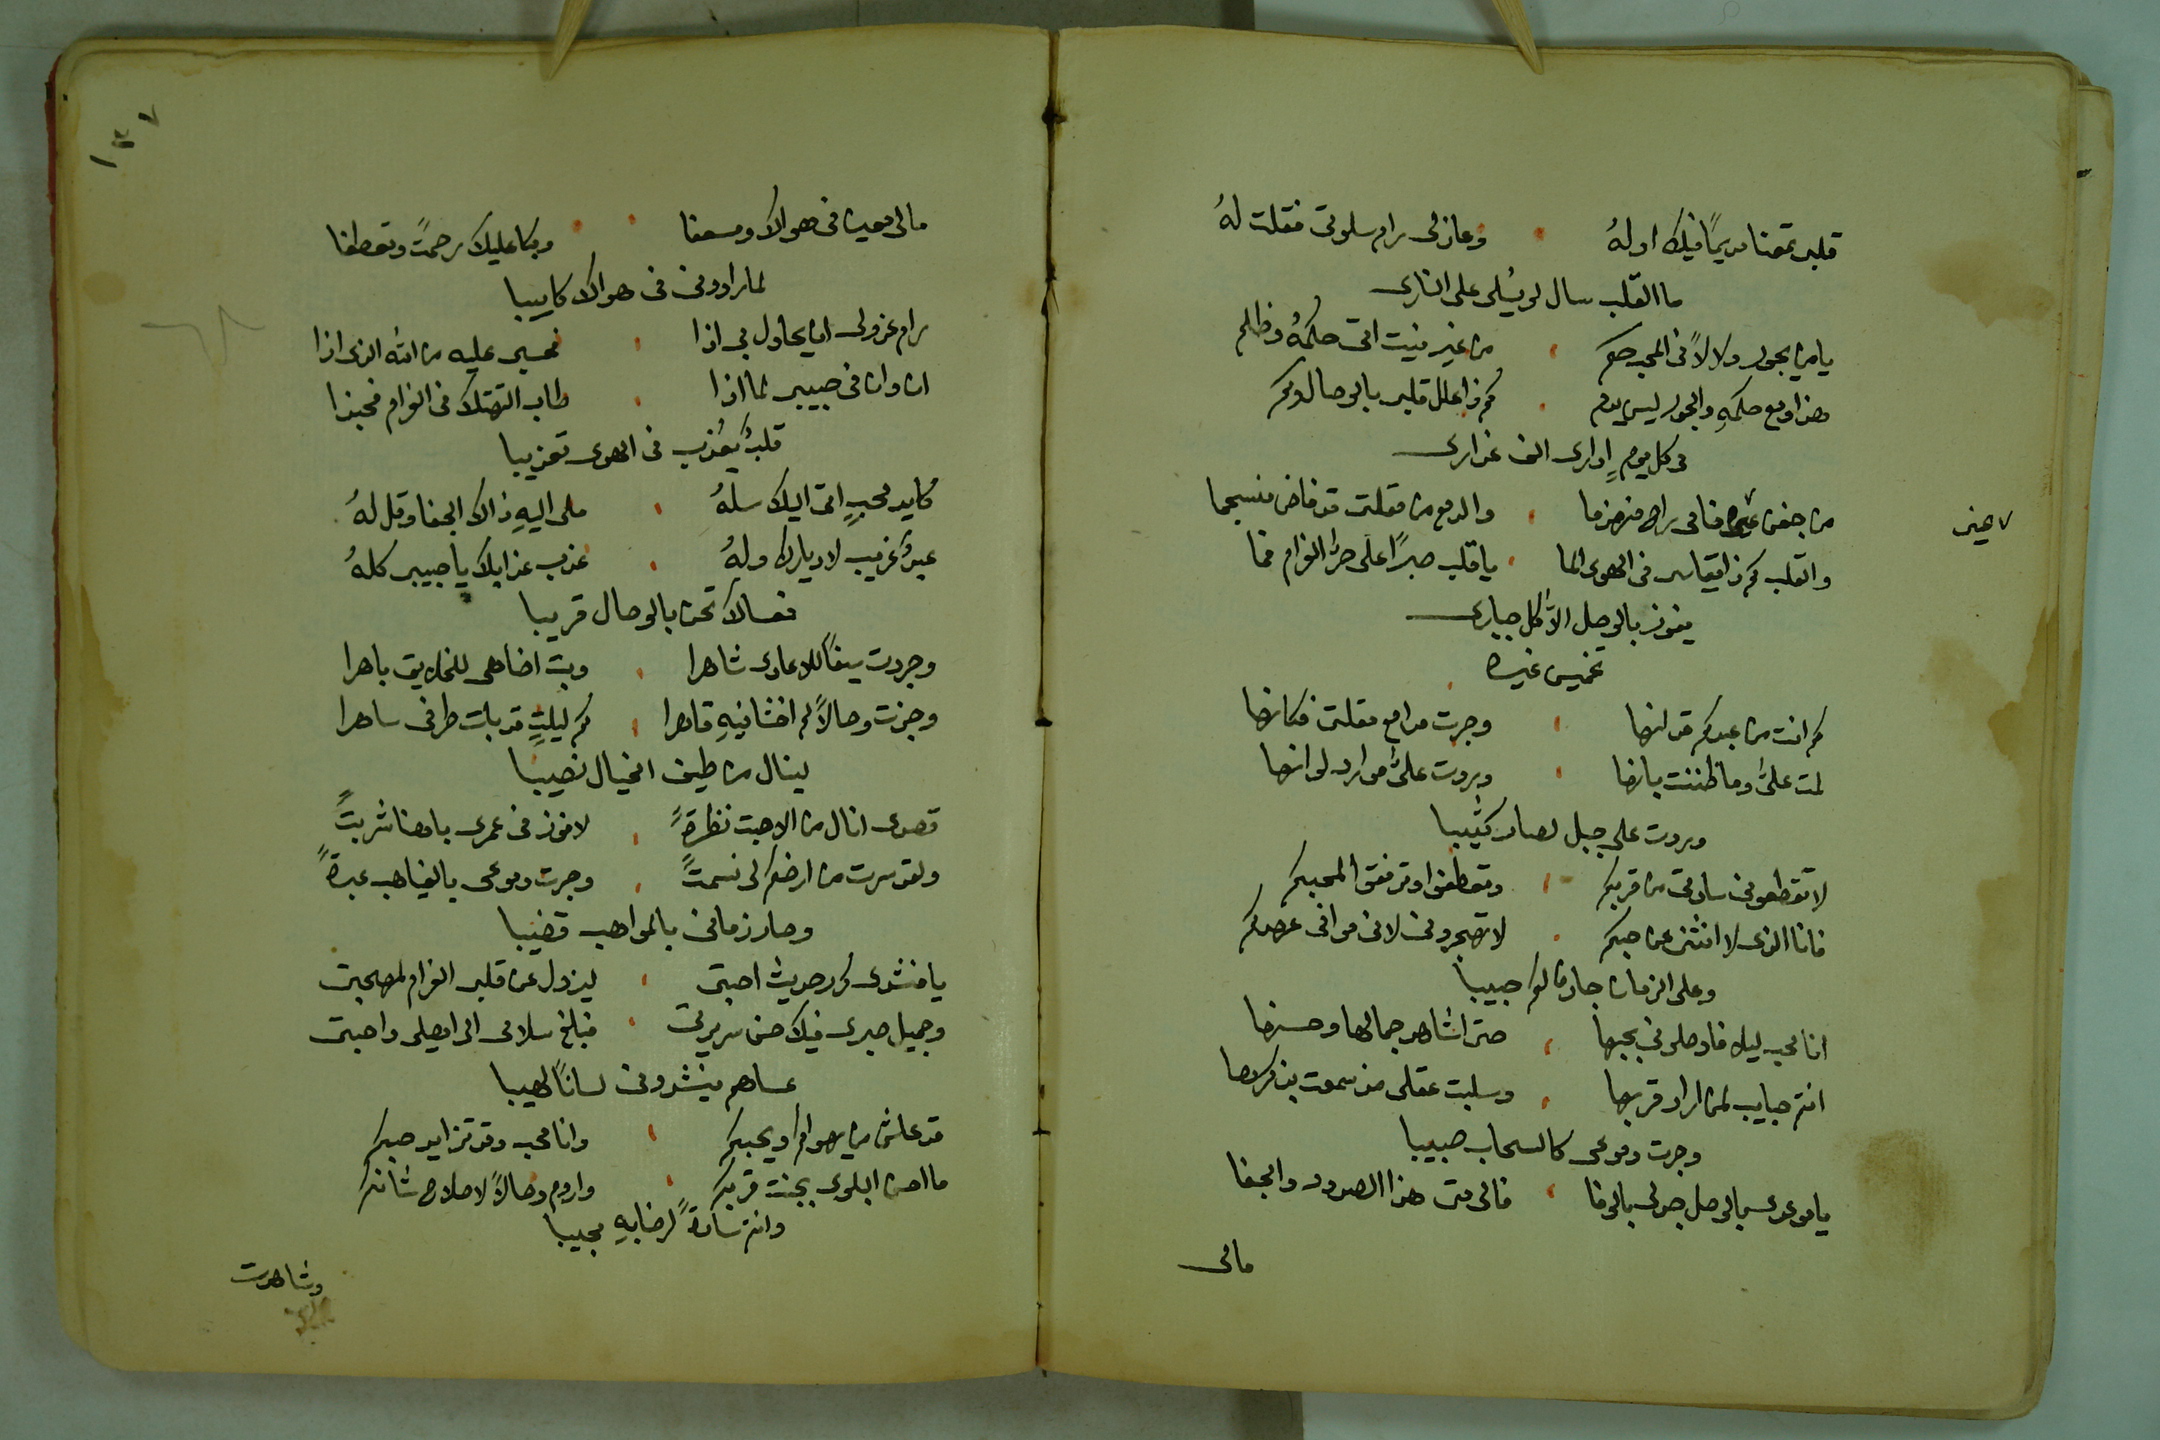 قلبى تمعنا مديمًا فيك اولهُ وعازلى رام سلوتى فقلت لهُ
ما القلب سال لو يُسلى على النارى
يا من يجور دلالاً فى المحب حكم من غير ميت اتى حكمهُ وظلم
هذا وبع حكمهِ والجور ليس يدم كم ذا علل قلبى بالوصال وكم
فى كل يومٍ ادارى الف غدارى
من جفن منامى راح منهزما والدمع من مقلتى قد فاض منسجما
عينى
والقلب كم ذا يقاسى فى الهوى الما يا قلب صبرًا على حرّ الغرام فما
يفوز بالوصل الاّ كل جبارى
تخميس غيره
كم انت من عبدكم قد لنها وجرت مدامع مقلتى فكانها
لمت علىّ وما ظننت بانها وبدت علىّ موارد لو انها
وردت على جبل لصار كثيبا
لا تقطعونى سادتى من قربكم وتعطفوا وترفقوا لمحبكم
فانا الذى لا انثنى عن حبكم لا تهجرونى لاننى موافى عهدكم
وعلى الزمان جار لكم حبيبا
انا محب ليلى فاوصلونى بحبها حتى اشاهد جمالها وحسنها
انتم حبايب لمن اراد قربها وسلبت عقلى منذ سمعت بذكرها
وجرت دموعى كالسحاب صبيبا
يا موعدى بالوصل جد لى بالوفا فالى متى هذا الصدود والجفا
مالى
١٣٧
مالى معين فى هواك ومسعفا وبكا عليك رحمتً وتعطفا
لما راودنى فى هواك كاييبا
رام عزولى ان يحاول بى اذا فحسبى عليه من الله الذى اذا
ان وان فى حبيبى لما اذا طاب التهتك فى الغرام فحبذا
قلبٌ يعُذب فى الهوى تعذيبا
كايد محبٍ اتى اليك سلهُ ملى اليهِ ذاك الجفا وقل لهُ
عبدٌ غريب لا ديارك ولهُ عذب عذابك يا حبيبى كلهُ
فعساك تحن بالوصال قريبا
وجردت سيفًا للاعادى شاهرا وبت اضاهى للخلايق باهرا
وجزت وصالاً لم اخشا فيهِ قاهرا كم ليلتٍ قد بات طرفى ساهرا
لينال من طيف الخيال نصيبا
قصدى انال من الاحبت نظرةً لافوز فى عمرى باهنا شربتً
ولقد سرت من ارضكم لى نسمتً وجرت دموعى بالغياهب عبرةً
وصار زمانى بالمواهب قضيبا
يا منشدى كرر حديث احبتى ليزول عن قلبى الغرام لمهجتى
وجميل صبرى فيك حسن سريرتى فبلغ سلامى الى اهلى واحبتى
عساهم ينشدونى لسانًا لهيبا
قد عاش من يهواكم ويحبكم وانا محب وقد تزايد حبكم
ما احسن البلوى بجنت قربكم واروم وصالاً لاصلاح شانكم
وانتم سادةً لرضابهِ مجيبا
وشاهدت